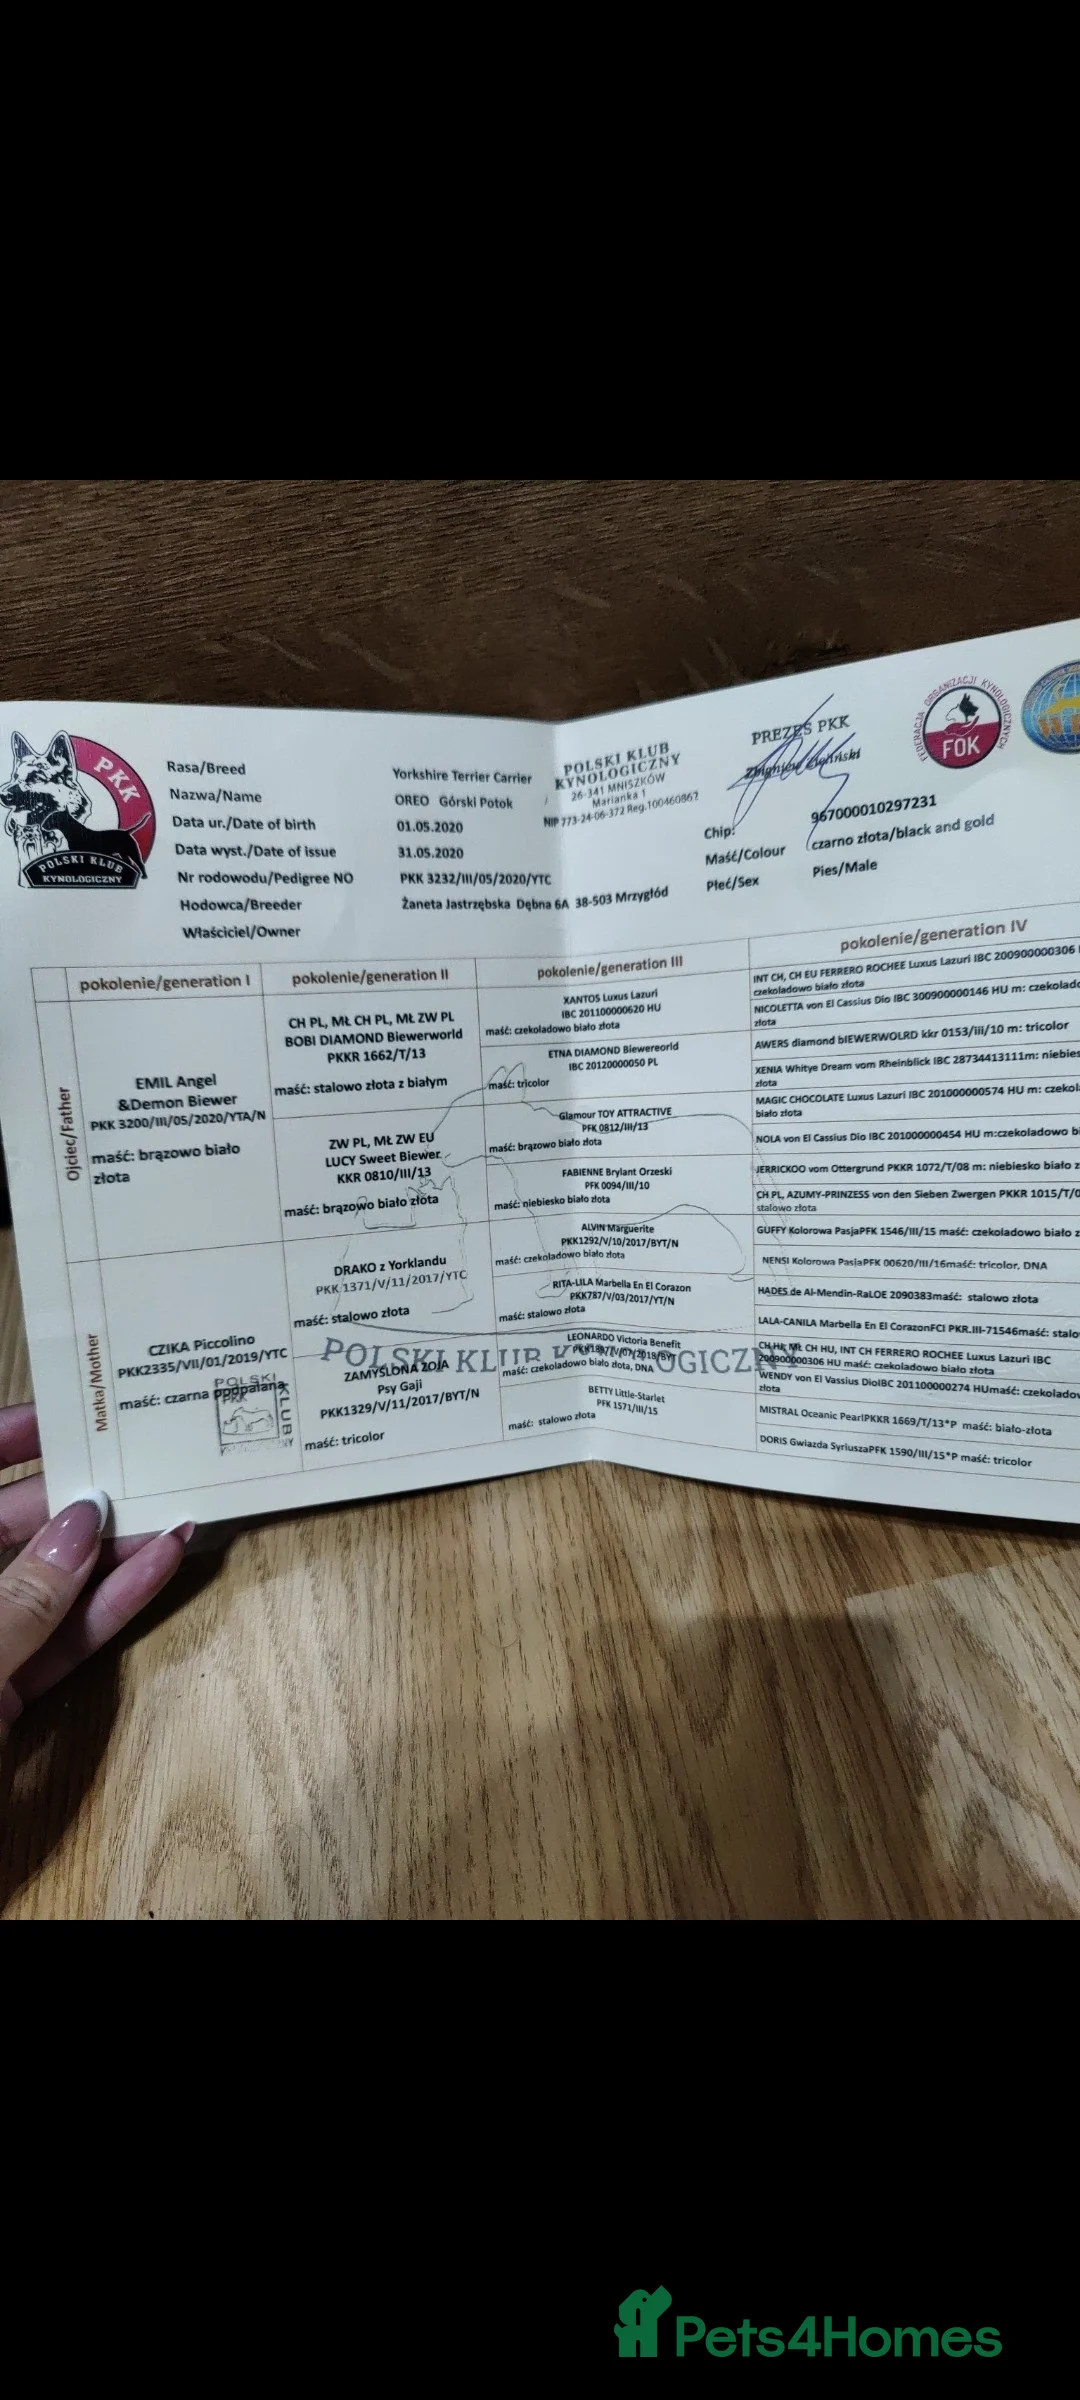 PKK
POLSKI KLUB
KYNOLOGICZNY
Rasa/Breed Yorkshire Terrier Carrier
Nazwa/Name OREO Górski Potok
Data ur./Date of birth 01.05.2020
Data wyst./Date of issue 31.05.2020
Nr rodowodu/Pedigree NO PKK 3232/III/05/2020/YTC
Hodowca/Breeder Żaneta Jastrzębska Dębna 6A 38-503 Mrzygłód
Właściciel/Owner
POLSKI KLUB
KYNOLOGICZNY
26-341 MNISZKÓW
Marianka 1
NIP 773-24-06-372 Reg.100460867
PREZES PKK
Zbigniew
FEDERACJA ORGANIZACJI KYNOLOGICZNYCH
FOK
Chip: 967000010297231
Maść/Colour czarno złota/black and gold
Płeć/Sex Pies/Male
pokolenie/generation I
pokolenie/generation II
pokolenie/generation III
pokolenie/generation IV
Ojciec/Father
EMIL Angel
&Demon Biewer
PKK 3200/III/05/2020/YTA/N
maść: brązowo biało
złota
Matka/Mother
CZIKA Piccolino
PKK2335/VII/01/2019/YTC
maść: czarna podpalana
POLSKI
PKK
KLUB
CH PL, MŁ CH PL, MŁ ZW PL
BOBI DIAMOND Biewerworld
PKKR 1662/T/13
maść: stalowo złota z białym
ZW PL, MŁ ZW EU
LUCY Sweet Biewer
KKR 0810/III/13
maść: brązowo biało złota
DRAKO z Yorklandu
PKK 1371/V/11/2017/YTC
maść: stalowo złota
ZAMYŚLONA ZOJA
Psy Gaji
PKK1329/V/11/2017/BYT/N
maść: tricolor
XANTOS Luxus Lazuri
IBC 201100000620 HU
maść: czekoladowo biało złota
ETNA DIAMOND Biewereorld
IBC 20120000050 PL
maść: tricolor
Glamour TOY ATTRACTIVE
PFK 0812/III/13
maść: brązowo biało złota
FABIENNE Brylant Orzeski
PFK 0094/III/10
maść: niebiesko biało złota
ALVIN Marguerite
PKK1292/V/10/2017/BYT/N
maść: czekoladowo biało złota
RITA-LILA Marbella En El Corazon
PKK787/V/03/2017/YT/N
maść: stalowo złota
LEONARDO Victoria Benefit
maść: czekoladowo biało złota, DNA
BETTY Little-Starlet
PFK 1571/III/15
maść: stalowo złota
POLSKI KLUB KYNOLOGICZNY
INT CH, CH EU FERRERO ROCHEE Luxus Lazuri IBC 200900000306
czekoladowo biało złota
NICOLETTA von El Cassius Dio IBC 300900000146 HU m: czekolado
złota
AWERS diamond bIEWERWOLRD kkr 0153/iii/10 m: tricolor
XENIA Whitye Dream vom Rheinblick IBC 28734413111m: niebies
złota
MAGIC CHOCOLATE Luxus Lazuri IBC 201000000574 HU m: czekol
biało złota
NOLA von El Cassius Dio IBC 201000000454 HU m:czekoladowo bi
JERRICKOO vom Ottergrund PKKR 1072/T/08 m: niebiesko biało z
CH PL, AZUMY-PRINZESS von den Sieben Zwergen PKKR 1015/T/0
stalowo złota
GUFFY Kolorowa PasjaPFK 1546/III/15 maść: czekoladowo biało z
NENSI Kolorowa PasjaPFK 00620/III/16maść: tricolor, DNA
HADES de Al-Mendin-RaLOE 2090383maść: stalowo złota
LALA-CANILA Marbella En El CorazonFCI PKR.III-71546maść: stalo
CH HU, MŁ CH HU, INT CH FERRERO ROCHEE Luxus Lazuri IBC
200900000306 HU maść: czekoladowo biało złota
WENDY von El Vassius DioIBC 201100000274 HUmaść: czekoladow
złota
MISTRAL Oceanic PearlPKKR 1669/T/13*P maść: biało-złota
DORIS Gwiazda SyriuszaPFK 1590/III/15*P maść: tricolor
Pets4Homes